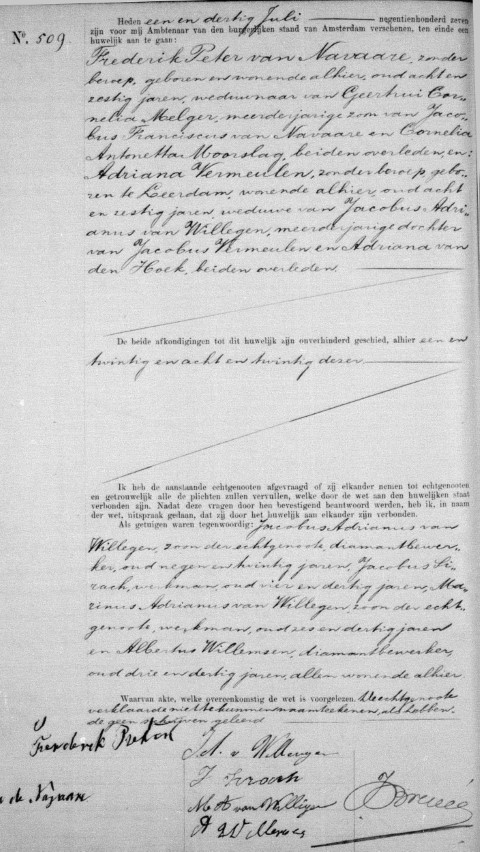 Heden een en dertig Juli negentienhonderd zeven
zijn voor mij Ambtenaar van den burgerlijken stand van Amsterdam verschenen, ten einde een
huwelijk aan te gaan:
No. 509
Frederik Peter van Navaare, zonder
beroep, geboren en wonende alhier, oud acht en
zestig jaren, weduwnaar van Geertrui Cor-
nelia Melger, meerderjarige zoon van Jaco-
bus Franciscus van Navaare en Cornelia
Antonetta Moorslag, beiden overleden, en:
Adriana Vermeulen, zonder beroep, gebo-
ren te Leerdam, wonende alhier, oud acht
en zestig jaren, weduwe van Jacobus Adri-
anus van Willegen, meerderjarige dochter
van Jacobus Vermeulen en Adriana van
den Hoek, beiden overleden.
De beide afkondigingen tot dit huwelijk zijn onverhinderd geschied, alhier een en
twintig en acht en twintig dezer
Ik heb de aanstaande echtgenooten afgevraagd of zij elkander nemen tot echtgenooten
en getrouwelijk alle de plichten zullen vervullen, welke door de wet aan den huwelijken staat
verbonden zijn. Nadat deze vragen door hen bevestigend beantwoord werden, heb ik, in naam
der wet, uitspraak gedaan, dat zij door het huwelijk aan elkander zijn verbonden.
Als getuigen waren tegenwoordig: Jacobus Adrianus van
Willegen, zoon der echtgenoote, diamantbewer-
ker, oud negen en twintig jaren, Jacobus
werkman, oud vier en dertig jaren, Ma-
rinus Adrianus van Willegen zoon der echt-
genoote, werkman, oud zes en dertig jaren
en Albertus Willemsen, diamantbewerker,
oud drie en dertig jaren, allen wonende alhier
Waarvan akte, welke overeenkomstig de wet is voorgelezen. De echtgenoote
verklaarde niet te kunnen naamteekenen, als hebben-
de geen schrijven geleerd
Frederik
v. Willegen
M A van Willigen